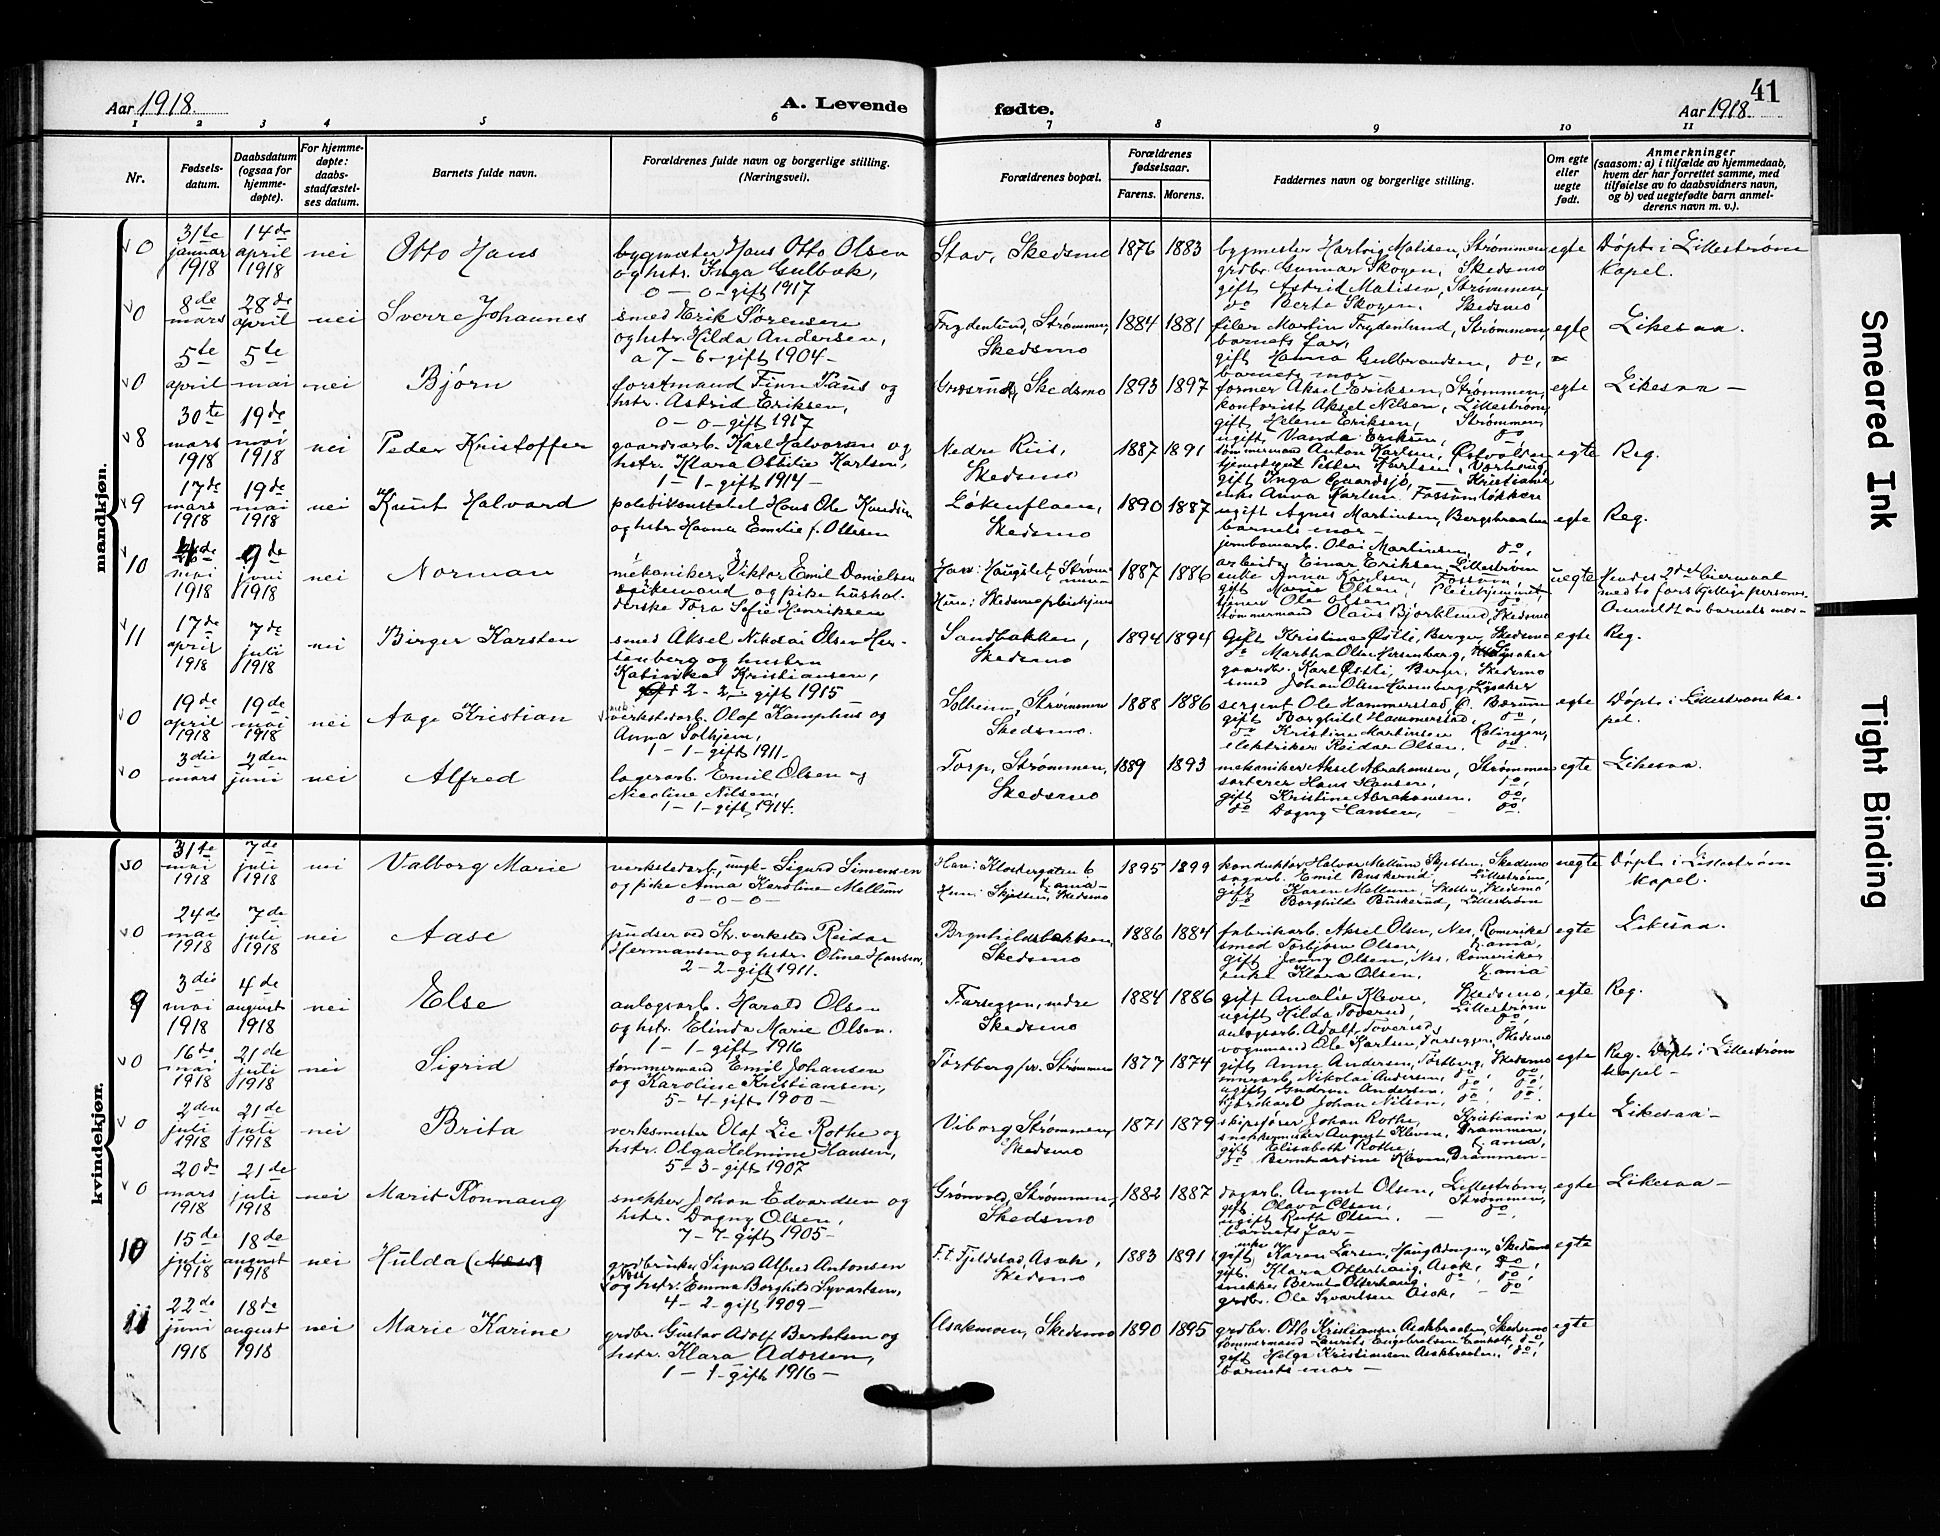 41
Aar 1918.
A. Levende
fødte.
Aar 1918
1 2 3 4 5 6 7 8 9 10 11
Nr.
Fødsels-
datum.
Daabsdatum
(ogsaa for
hjemme-
døpte).
For hjemme-
døpte:
daabs-
stadfæstel-
ses datum.
Barnets fulde navn.
Forældrenes fulde navn og borgerlige stilling.
(Næringsvei).
Forældrenes bopæl.
Forældrenes
fødselsaar.
Farens. Morens.
Faddernes navn og borgerlige stilling.
Om egte
eller
uegte
født.
Anmerkninger
(saasom: a) i tilfælde av hjemmedaab,
hvem der har forrettet samme, med
tilføielse av to daabsvidners navn,
og b) ved uegtefødte barn anmel-
derens navn m. v.).
mandkjøn.
v0
31te
januar
1918
14de
april
1918
nei
Otto Hans
bygmester Hans Otto Olsen
og hstr. Inga Gulbak,
0 - 0 - gift 1917
Stav, Skedsmo
1876
1883
bygmester Hartvig Matisen, Strømmen
grdbr. Gunnar Skogen, Skedsmo
gift Astrid Matisen, Strømmen,
do Berte Skogen. Skedsmo
egte
Døpt i Lillestrøm
Kapel.
v0
8de
mars
28de
april
nei
Sverre Johannes
smed Erik Sørensen
og hstr. Hilda Andersen,
a 7 - 6 - gift 1904 -
Frydenlund, Strømmen,
Skedsmo
1884
1881
filer Martin Frydenlund, Strømmen,
barnets far,
gift Hanna Gulbrandsen, do,
barnets mor -
egte
Likesaa.
v0
5te
april
5te
mai
nei
Bjørn
forstmand Finn Paus og
hstr. Astrid Eriksen,
0 - 0 - gift 1917
Skedsmo
1893
1897
former Aksel Eriksen, Strømmen,
kontorist Aksel Nilsen, Lillestrøm,
gift Helene Eriksen, Strømmen,
ugift Vanda Eriksen, do
egte
Likesaa -
v8
30te
mars
1918
19de
mai
1918
nei
Peder Kristoffer
gaardsarb. Karl Halvorsen og
hstr. Klara Ottilie Karlsen,
1 - 1 - gift 1914 -
Nedre Riis,
Skedsmo
1887
1891
tømmermand Anton Karlsen,
gift Inga Gaardsjø, - Kristiania
enke Anna Karlsen,
egte
Reg.
v9
17de
mars
1918
19de
mai
1918
nei
Knut Halvard
politikonstabel Hans Ole Knudsen
og hstr. Hanna Emelie f. Ottesen
Løkenflaen,
Skedsmo
1890
1887
ugift Agnes Martinsen, Bergsbraaten
barnets mor -
jernbanearb. Olai Martinsen, do,
egte
Reg.
v10
mai
1918
9de
juni
1918
nei
Norman
mekaniker Viktor Emil Danielsen
og pike hushol-
derske Tora Sofie Henriksen
Han: Haugslet, Strøm-
men -
Hun: Skedsmo pleiehjem
1887
1886
arbeider Einar Eriksen, Lillestrøm
enke Anna Karlsen, Fossum,
gift Marie Olsen, Pleiehjemmet
tjener Ola Olsen do
tømmermand Olaus Bjørklund, Skedsmo
uegte
Hendes 2det leiermaal
med to forskjellige personer
Anmeldt av barnets mor -
v11
17de
april
1918
7de
juli
1918
nei
Birger Karsten
smed Aksel Nikolai Olsen Her-
senberg og hustru
Katinka Kristiansen,
2 - 2 - gift 1915
Sandbakken,
Skedsmo
1894
1894
gift Kristine Østli, Berger, Skedsmo
do Martha Olsen Hersenberg, Lysaker
gaardb. Karl Østli, Berger, Skedsmo
smed Johan Olsen Hersenberg, Lysaker
egte
Reg.
v0
19de
april
1918
19de
mai
1918
nei
Aage Kristian
verkstedarb. Olaf Kamphus og
Anna Solhjem,
1 - 1 - gift 1911.
Solheim, Strømmen
Skedsmo.
1888
1886
sergent Ole Hammerstad, Ø. Bærum
gift Borghild Hammerstad, do,
do Kristine Martinsen Rælingen,
elektriker Reidar Olsen. do.
egte
Døpt i Lillestrøm ka-
pel.
v0
3die
mars
2den
juni
nei
Alfred
lagerarb. Emil Olsen og
Nicoline Nilsen,
1 - 1 - gift 1914.
Torp, Strømmen,
Skedsmo
1889
1893
mekaniker Aksel Abrahamsen, Strømmen
sorterer Hans Hansen, do,
gift Kristine Abrahamsen. do,
do Dagny Hansen, do,
egte
Likesaa.
kvindekjøn.
v0
31te
mai
1918
7de
juli
1918
nei
Valborg Marie
verkstedarb., ungk. Sigurd Simensen
og pike Anna Karoline Mellum
0 - 0 - 0 -
Han: Klostergaten 6
Kania -
Hun: Skjetten, Skedsmo
1895
1899
konduktør Halvor Mellum Skjetten, Skedsmo
sagarb. Emil Buskerud, Lillestrøm,
gift Karen Mellum, Skjetten, Skedsmo
do Borghild Buskerud, Lillestrøm
uegte
Døpt i Lillestrøm
Kapel.
v0
24de
mai
1918
7de
juli
1918
nei
Aase
pudser ved Str. verksted Reidar
Hermansen og hstr. Oline Hansen,
2 - 2 - gift 1911.
Brynhildsbakken,
Skedsmo
1886
1884
fabrikarb. Aksel Olsen, Nes, Romerike
smed Torbjørn Olsen, Kania,
gift Jenny Olsen, Nes, Romerike
enke Klara Olsen, Kania
egte
Likesaa.
9
3die
mai
1918
4de
august
1918
nei
Else
anlægsarb. Harald Olsen
og hstr. Elinda Marie Olsen.
1 - 1 - gift 1916
Farseggen, nedre
Skedsmo
1884
1886
gift Amalie Kleven, Skedsmo,
ugift Hilda Toverud, Lillestrøm
anlægsarb. Adolf Toverud, do,
vognmand Ole Karlsen, Farseggen, Skedsmo
egte
Reg.
v0
16de
mai
1918
21de
juli
1918
nei
Sigrid
tømmermand Emil Johansen
og Karoline Kristiansen,
5 - 4 - gift 1900 -
Torstberg pr. Strømmen
1877
1874
gift Anne Andersen, Torstberg, Skedsmo
murarb. Nikolai Andersen, do, do,
ugift Gudrun Andersen, do, do,
kjørekarl Johan Nilsen, do, do.
egte
Reg. Døpt i Lillestrøm
kapel -
v0
2den
juli
1918
21de
juli
1918
nei
Brita
verksmester Olaf Lie Rothe og
hstr. Olga Helmine Hansen,
5 - 3 - gift 1907
Viborg, Strømmen,
Skedsmo
1871
1879
skipsfører Johan Rothe, Kristiania
snekkermester August Kleven, Drammen,
gift Elisabeth Rothe, Kania,
do Bernhardine Kleven, Drammen -
egte
Likesaa -
v0
20de
mars
1918
21de
juli
1918
nei
Marit Rønnaug
snekker Johan Edvardsen og
hstr. Dagny Olsen,
7 - 7 - gift 1905 -
Grønvold, Strømmen,
Skedsmo
1882
1887
dagarb. August Olsen, Lillestrøm,
gift Olava Olsen, Strømmen,
ugift Ruth Olsen. - do,
barnets far -
egte
Likesaa -
10
15de
juli
1918
18de
august
1918
nei
Hulda (
grdbruker Sigurd Alfred Antonsen
Næss
og hstr. Emma Borghild Syvertsen,
4 - 2 - gift 1909 -
F. t. Fjeldstad, Asak,
Skedsmo
1883
1891
gift Karen Larsen, Skedsmo
gift. Klara Otterhaug, Asak, do,
snekker Bernt Otterhaug, do, do,
grdbr. Ole Syvertsen Asak, - do
egte
11
22de
juni
1918
18de
august
1918
nei
Marie Karine
grdbr. Gustav Adolf Berthelsen og
hstr. Klara Adorsen,
1 - 1 - gift 1916 -
Asakmoen, Skedsmo
1890
1895
grdbr. Otto Kristiansen Asakbraaten, Skedsmo
tømmermand Laurits Engebretsen do,
gift Helga Kristiansen Asakbraaten, do,
barnets mor -
egte
Smeared Ink
Tight Binding